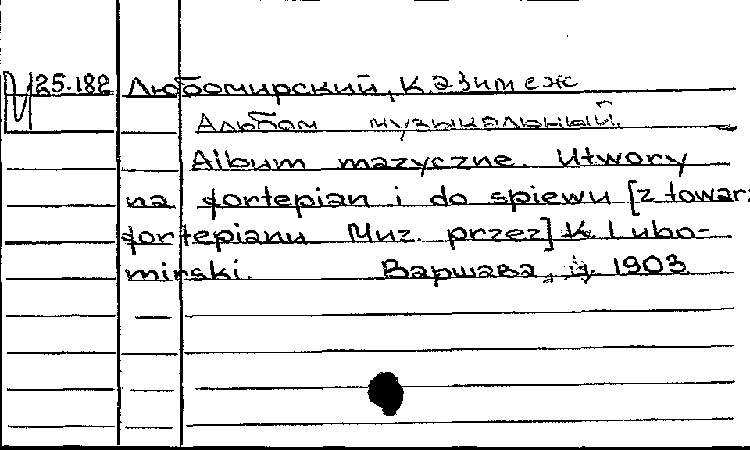 И 25.182 Любомирский, Казимеж
Альбом музыкальный.
Album mazyczne. Utwory
na fortepian i do spiewu [z towar
fortepianu Muz. przez] K. Lubo-
mirski. Варшава, 1903